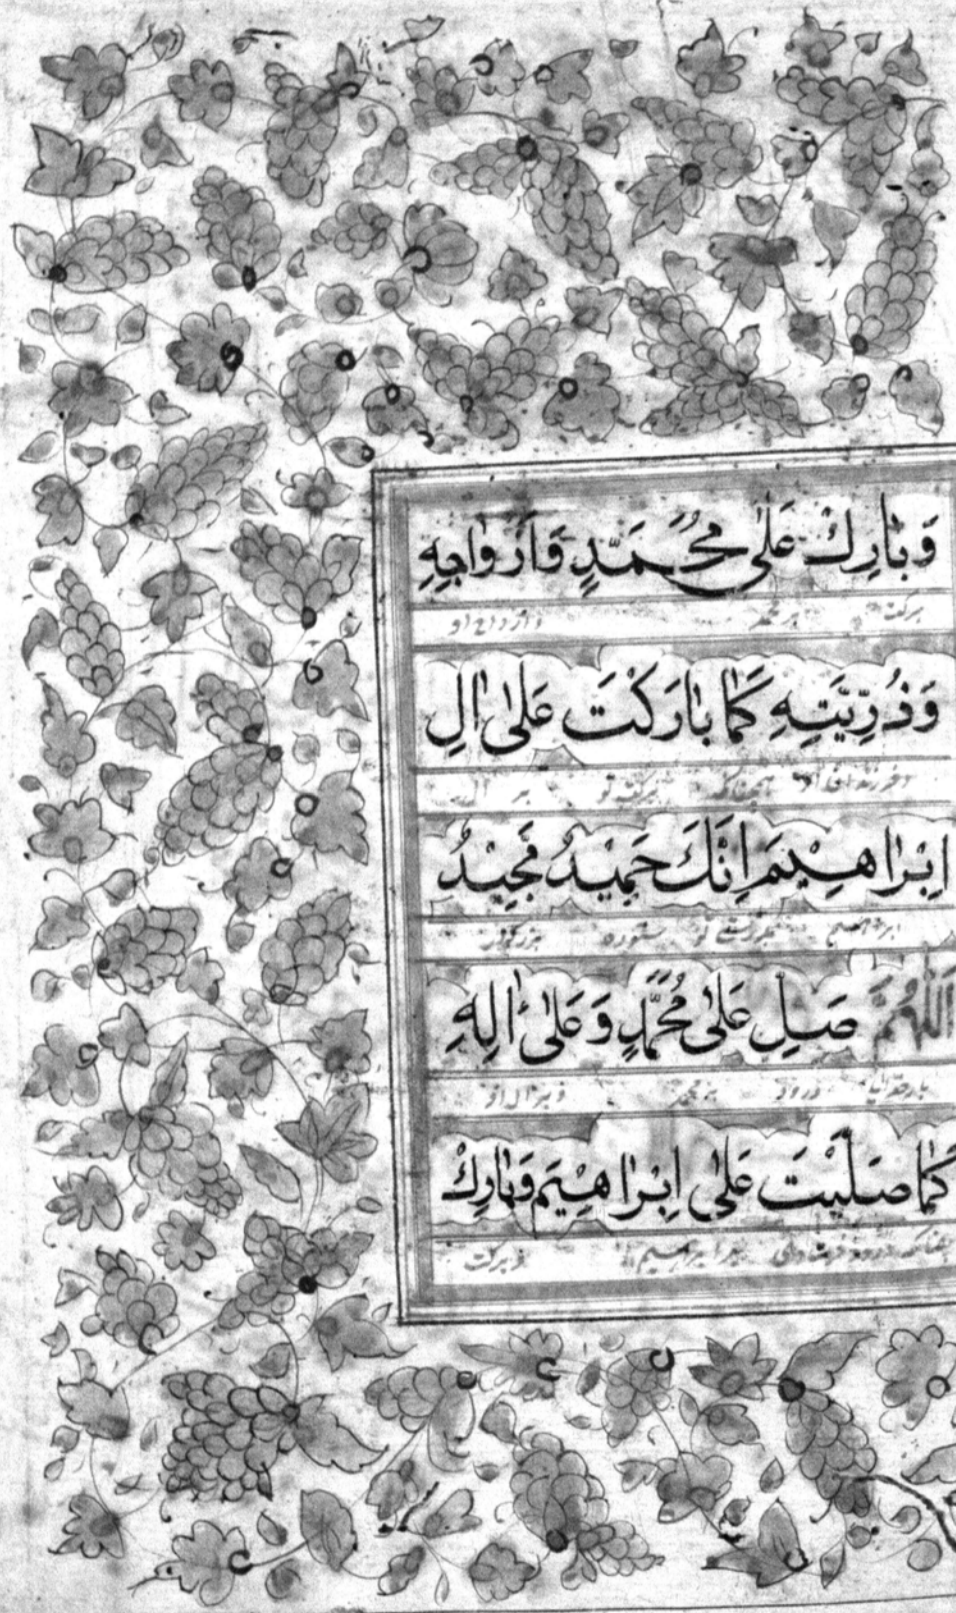 وَبَارِكْ عَلٰى مُحَمَّدٍ وَاَزْوَاجِهِ
برکت بر محمد و ازواج او
وَذُرِّيَّتِهِ كَمَا بَارَكْتَ عَلٰى اٰلِ
همچنانکه برکت تو بر آل
اِبْرَاهِيْمَ اِنَّكَ حَمِيْدٌ مَّجِيْدٌ
ابراهیم تو ستوده بزرگوار
اَللّٰهُمَّ صَلِّ عَلٰى مُحَمَّدٍ وَعَلٰى اٰلِهِ
بار خدایا درود بر محمد و بر آل او
كَمَا صَلَّيْتَ عَلٰى اِبْرَاهِيْمَ وَبَارِكْ
درود بر ابراهیم و برکت